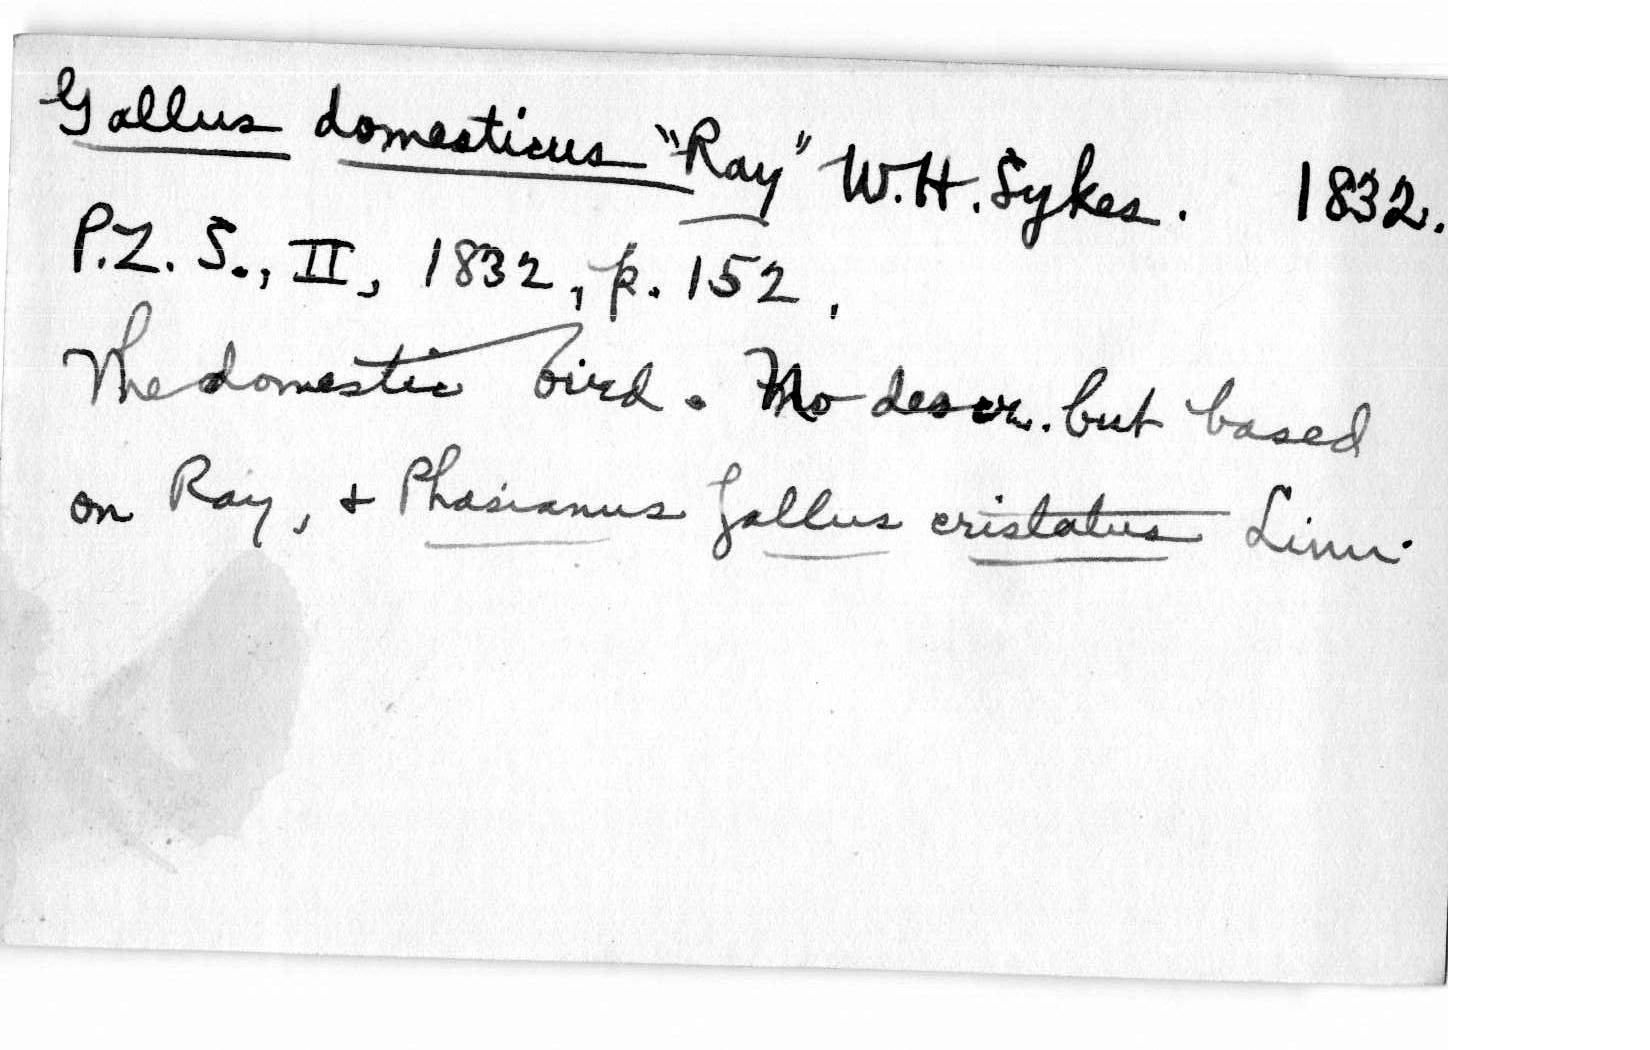 Gallus domesticus "Ray" W.H. Sykes. 1832.
P.Z.S., II, 1832, p. 152.
The domestic bird. No descr. but based
on Ray, & Phasianus Gallus cristatus Linn.